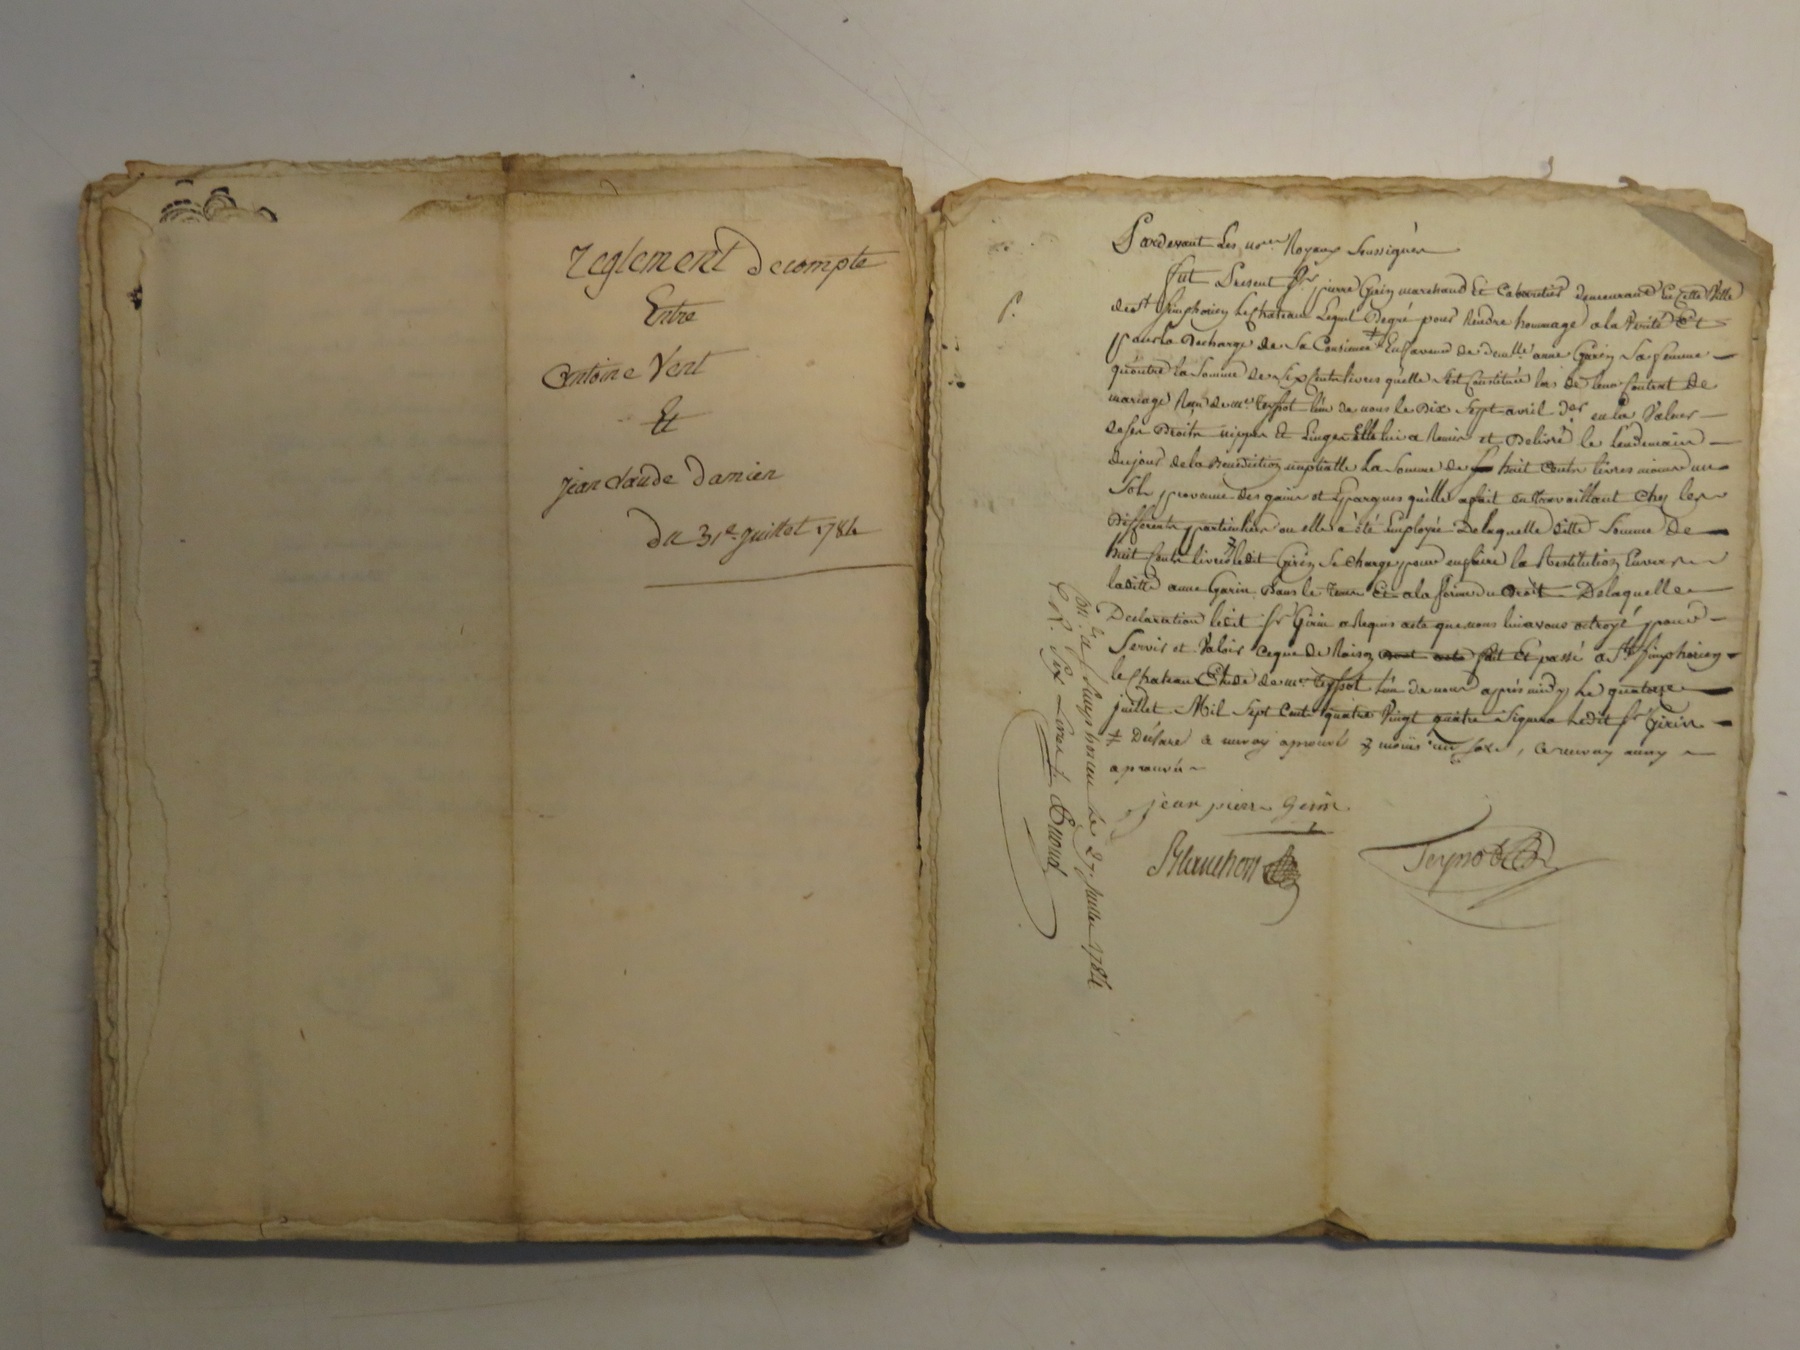 Reglement decompte
Entre
Antoine Vert
Et
jean Claude Damien
Du 31e juillet 1784
Pardevant Les nores Royaux Soussignés
fut Present Sr pierre Girin marchand Et Cabaretier demeurand En Cette Ville
de St Simphorien Le Chateau Lequel Degré pour Rendre hommage a la Verité Et
pour la Decharge de Sa Consience ‡ En faveur de Demlle anne Garin Sa femme
qu'outre la Somme de Six Cents livres quelle s'est Constituée lors de leur Contrat de
mariage Reçu de me Teyssot l'un de nous le Dix Sept avril der en la Valeur
de ses Droits nippes Et Linges Elle lui a Remis et Delivré le Lendemain
du jour de la Benediction nuptialle La Somme de huit Cents livres moins un
Sol provenue des gains et Epargnes qu'elle a fait en Travaillant Chez les
Differents particuliers ou elle a été Employée De laquelle ditte Somme De
huit Cents livres ledit Girin Se Charge pour en faire la Restitution Envers
laditte anne Garin Dans le Tems Et a la forme du Droit De laquelle
Declaration ledit Sr Girin a Requis acte que nous lui avons octroyé pour
Servir et Valoir Ce que de Raison fait Et passé a St Simphorien
le Chateau Etude de me Teyssot l'un de nous après midy Le quatorze
juillet Mil Sept Cent quatre Vingt quatre a Signé Ledit Sr Girin
‡ Déclare a renvoy aprouvé moins un sol, Ce renvoy aussy
aprouvé
jean pierre Girin
Blanchon
Teyssot
Clé a St Simphorien Le 27 Juillet 1784
Six Livres